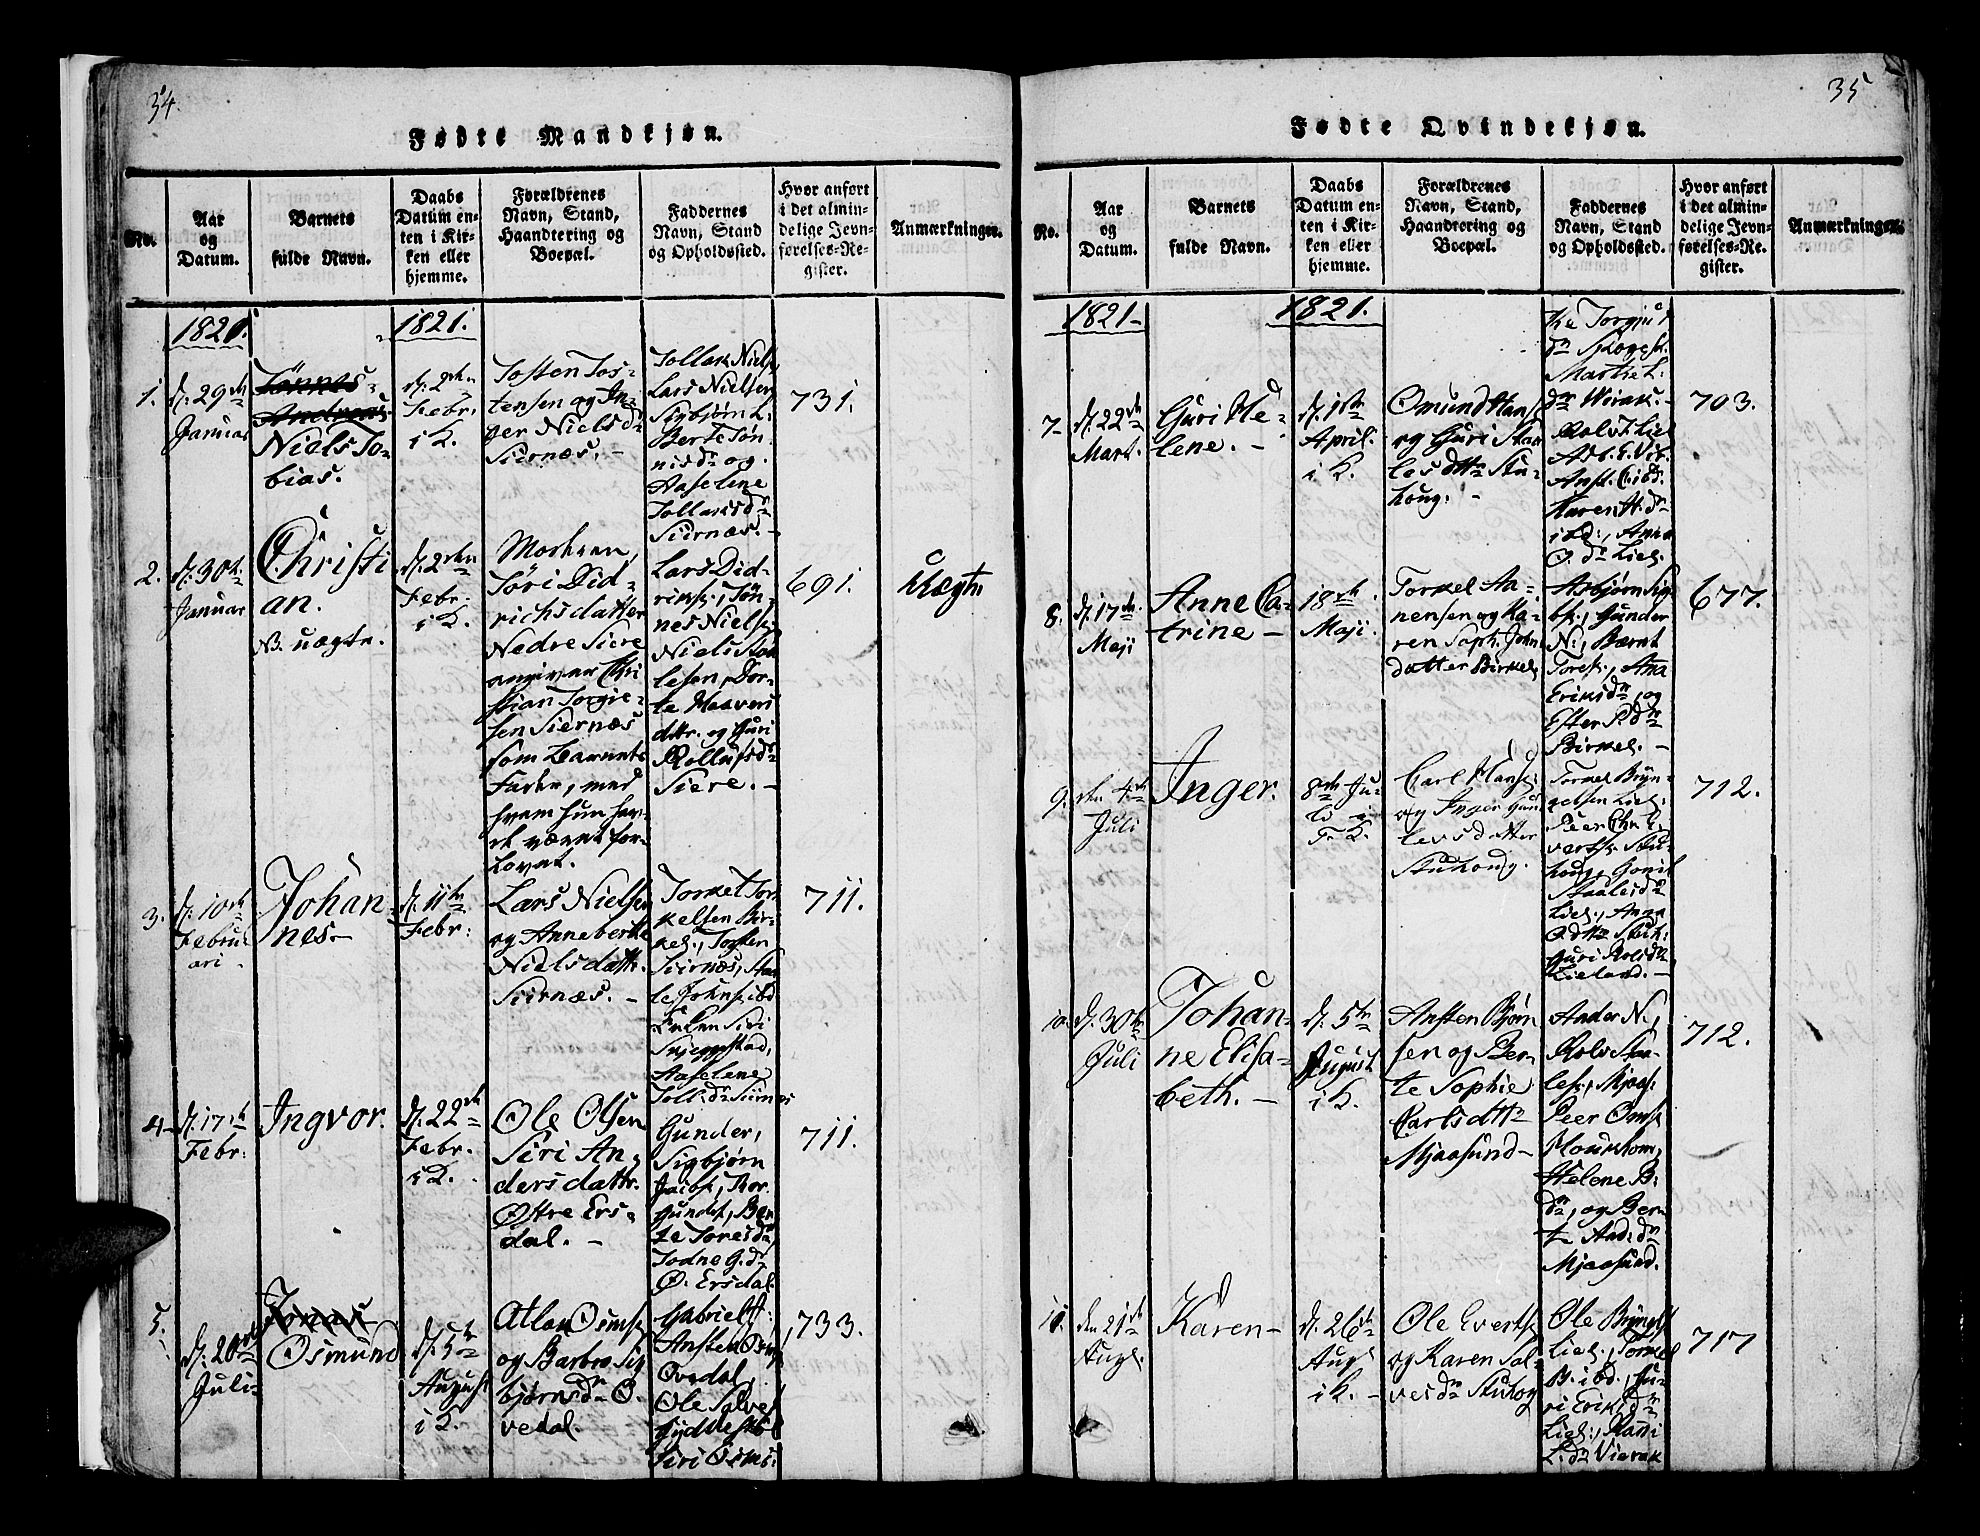 34.
Fødte Mandkjøn.
No.
Aar
og
Datum.
Barnets
fulde Navn.
Daabs
Datum en-
ten i Kir-
ken eller
hjemme.
Forældrenes
Navn, Stand,
Haandtering og
Boepæl.
Faddernes
Navn, Stand
og Opholdssted.
Hvor anført
i det almin-
delige Jevn-
førelses-Re-
gister.
Anmærkninger.
1821.
1821.
1.
d. 29de
Januar
Tönnes
Andreas
Niels To-
bias.
d. 2den
Febr.
i K.
Tosten Tos-
tensen og In-
ger Nielsd:
Siirnæs. -
Tollak Niels,
Lars Nielsen
Sigbjørn L.
Berte Tön-
nisdr og
Aaselene
Tollaksdr
Siirnæs. -
731.
2.
d. 30te
Januar
Christi-
an.
NB. uægte.
d. 2den
Febr.
i K.
Moderen,
Siri Did-
richsdatter
Nedre Siere
angiver Chri-
stian Torgie-
sen Siernæs
som Barnets
Fader, med
hvem hun har-
de været for-
lovet.
Lars Did-
riks., Tön-
nes Niels.
Niels Staa-
lesen, Dor-
te Haaveri
dttr. og Guri
Rollufsdr
Siere. -
691.
Uægte
3.
d. 10de
Febru-
ari -
Johan-
nes. -
d. 11te
Febr:
Lars Nielsen
og Anneberte
Nielsdattr.
Siirnæs. -
Torkel Tor-
kelsen Bir-
kel., Tosten
Siirnæs, Staa-
le Johns. ibd
Enken Siri
Snjeggstad,
Aaselene
Toll.dr Siirnæs
711.
4
d. 17de
Febr:
Ingvor.
d. 22de
Febr.
i K.
Ole Olsen
Siri An-
dersdattr.
Østre Ers-
dal. -
Gunder,
Sigbjørn
Jacobs., Tor.
Gunders., Ber-
te Toresdr
Jodne G.dr
Ø. Ersdal.
711.
5.
d. 20de
Juli
Jonas
Osmund
d. 5te
August
i K.
Atlak Osms.
og Barbro Sig-
bjørnsdr O-
vedal.
Gabriel T:
Ansten Osm.
Ovedal,
Ole Salves.
Siri Osms:
733.
35
Fødte Qvindekjøn.
No.
Aar
og
Datum.
Barnets
fulde Navn.
Daabs
Datum en-
ten i Kir-
ken eller
hjemme.
Forældrenes
Navn, Stand,
Haandtering og
Boepæl.
Faddernes
Navn, Stand
og Opholdssted.
Hvor anført
i det almin-
delige Jevn-
førelses-Re-
gister.
Anmærkninger.
1821
1821.
7
d. 22de
Mart.
Guri He-
lene. -
d. 1ste
April.
i K.
Omund Hans.
og Guri Staa-
lesdttr Stu-
houg. -
Torgju
Karen H.dr
ibd:, Anna
O.dr Liel.
703.
8.
d. 17de
Maji
Anne Ca-
trine -
18de
Maji.
Torkel Aa-
nensen og Ka-
ren Soph. John-
datter Birkel.
Asbjørn Sig-
b., Gunder
N:, Bærnt
Tores., Ana
Eriksdr, og
Ester P.dr
Birkel. -
677.
9.
den 4de
Juli
Inger.
8de Ju-
li i
F. K.
Carl Hans.
og Inger Gun-
levsdatter
Stuhoug.
Torkel Bryn-
gelsen Liel.
Peer Chr. E-
verts. Stu-
houg, Gonil
Staalesdr
Liel., Anna
O.dttr Stuh.
Guri Rolfdr
Lieland. -
712.
10.
d. 30te
Juli
Johan-
ne Elisa-
beth. -
d. 5te
August
i K.
Ansten Bjørn-
sen og Ber-
te Sophie
Carlsdttr
Mjaasund -
Ander N.,
Rolv Staa-
les., Mjaas.
Peer Oms.
Helene B.
dr, og Ber-
te And:dr
Mjaasund.
712.
11.
den 21de
Aug.
Karen -
d. 26de
Aug.
i K. -
Ole Everts.
og Karen Sal-
vesdr Stuhog
Ole Bryngels
Liel., Torkel
B. ibd., Gu-
ri Eriksdr
Liel., Rani
L.dr Vierak
717